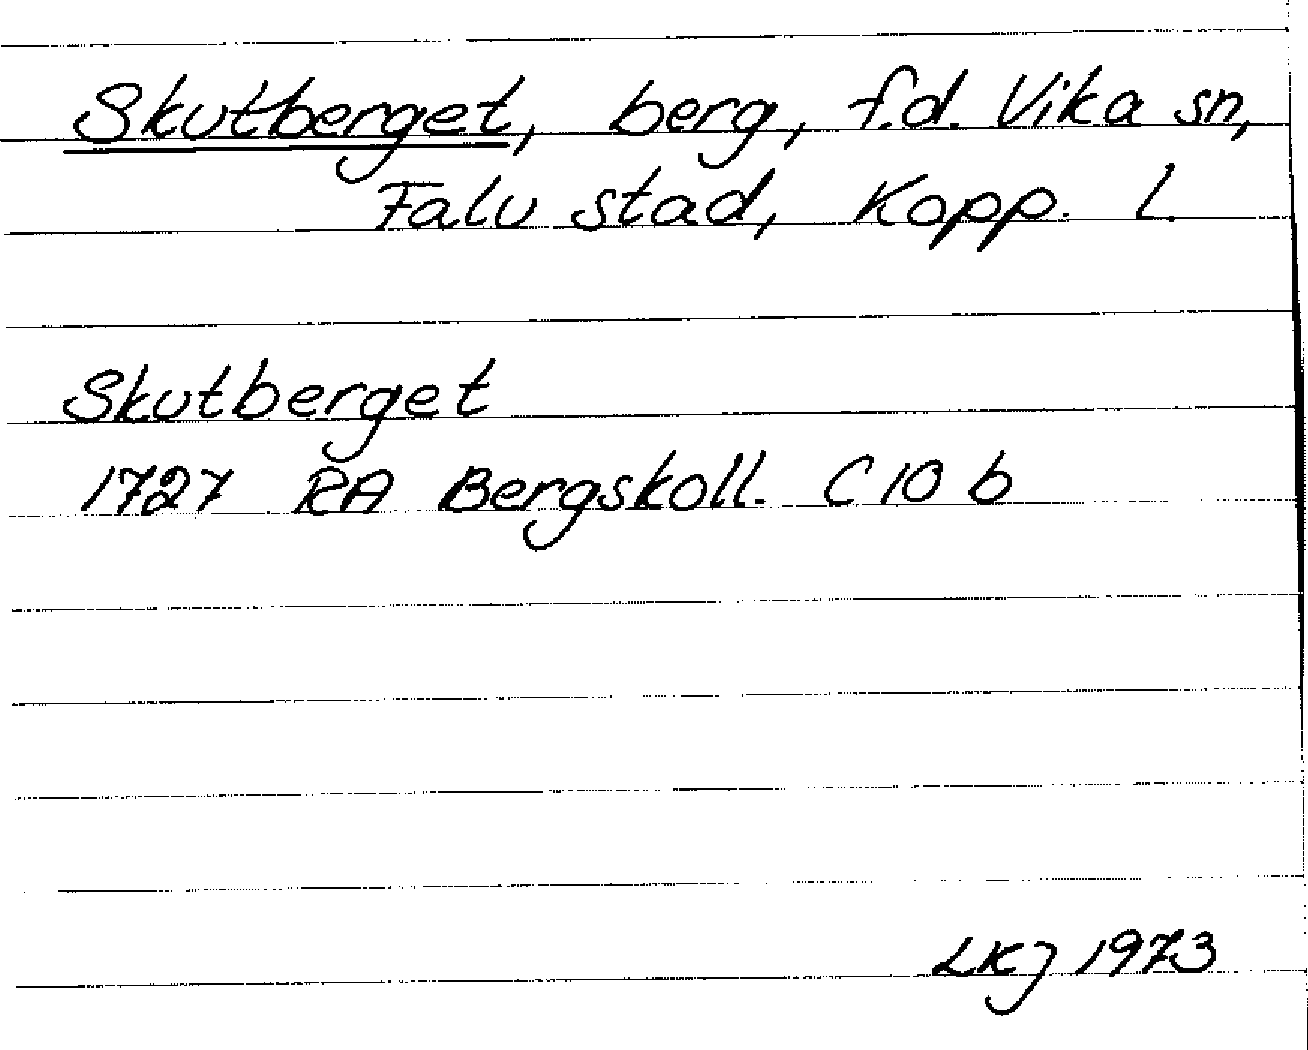 Skutberget, berg, f.d. Vika sn,
Falu stad, Kopp. l.
Skutberget
1727 RA Bergskoll. C 10 b
LKJ 1973